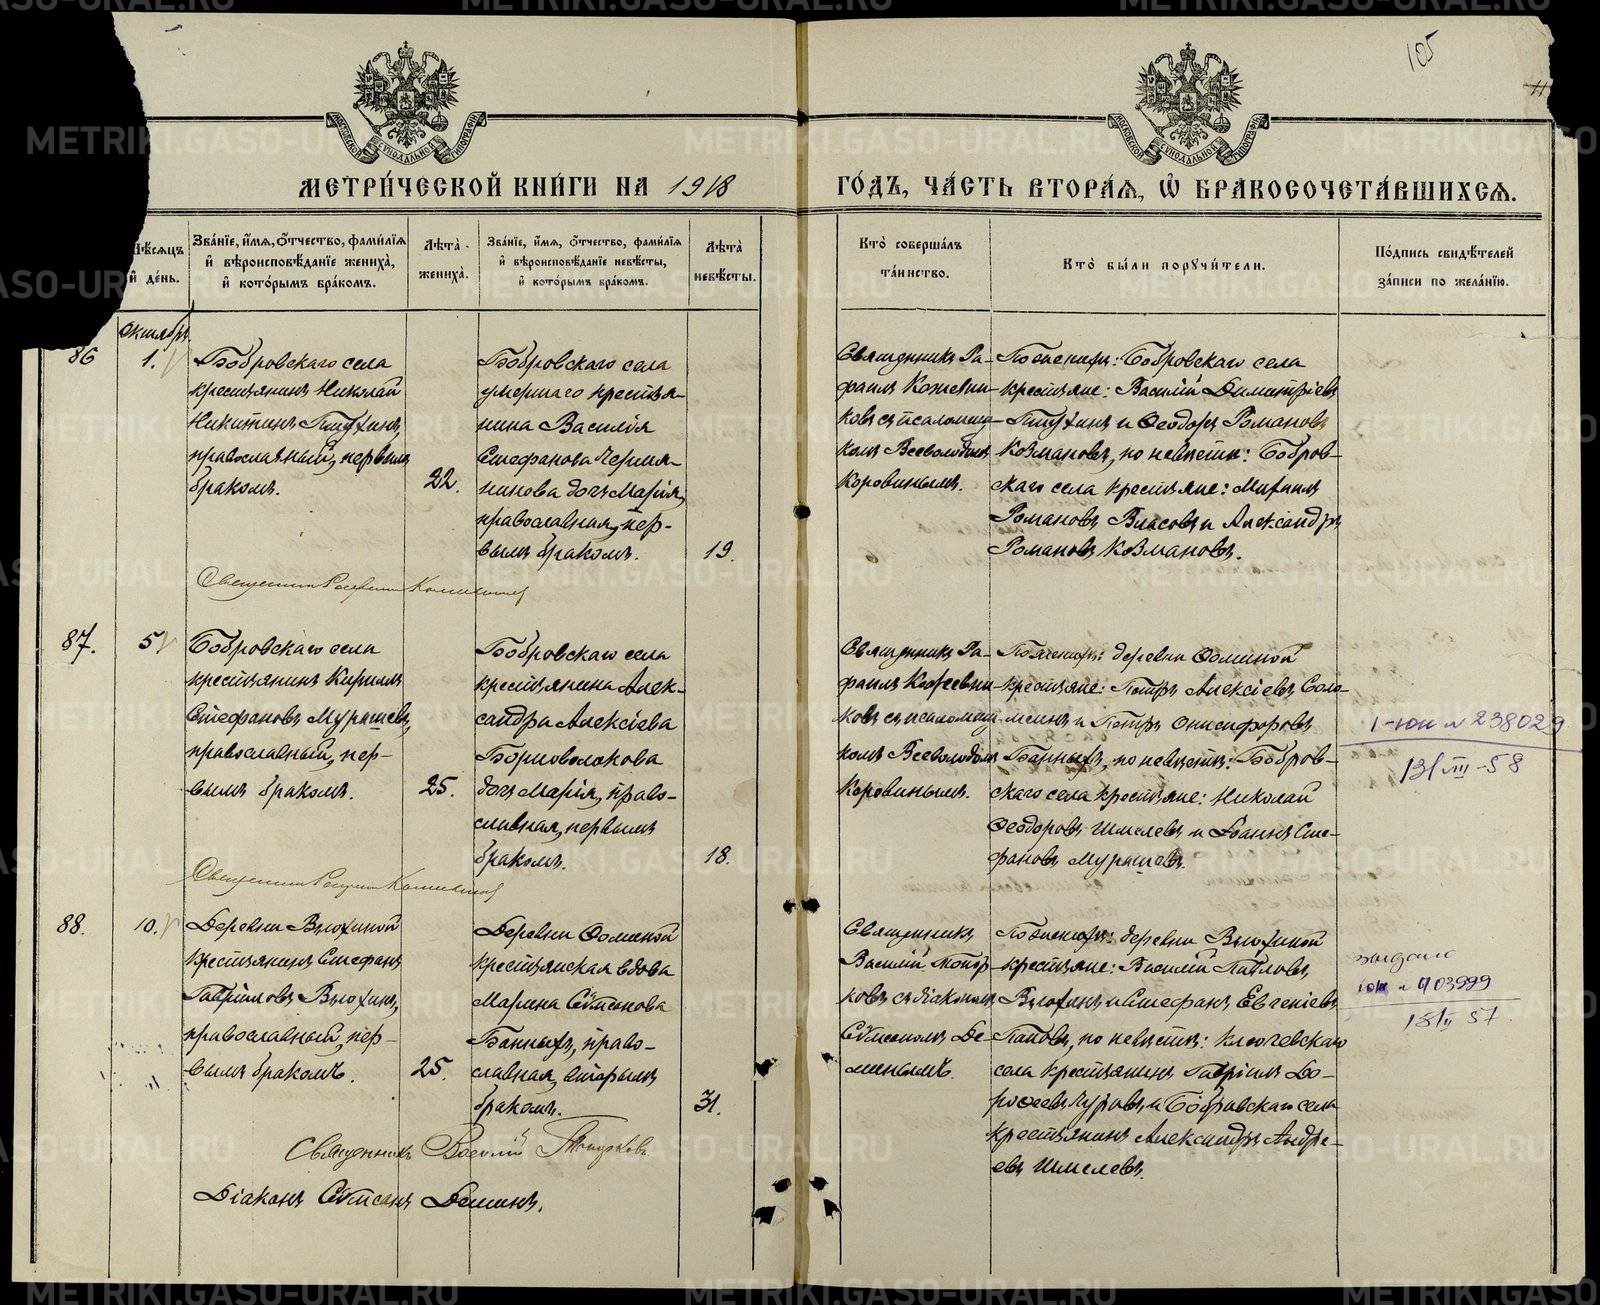 105
11
МЕТРИ́ЧЕСКОЙ КНИ́ГИ НА 1918
ГО́ДЪ, ЧА́СТЬ ВТОРА́Ѧ, Ѡ҆ БРАКОСОЧЕТА́ВШИХСѦ.
Мѣ́сяцъ
и҆ де́нь.
Зва́нїе, и҆́мѧ, ѻ҆́тчество, фами́лїѧ
и҆ вѣроисповѣ́данїе жениха̀,
и҆ кото́рымъ бра́комъ.
Лѣта̀
жениха̀.
Зва́нїе, и҆́мѧ, ѻ҆́тчество, фами́лїѧ
и҆ вѣроисповѣ́данїе невѣ́сты,
и҆ кото́рымъ бра́комъ.
Лѣта̀
невѣ́сты.
Кто̀ соверша́лъ
та́инство.
Кто̀ бы́ли порꙋчи́тели.
По́дпись свидѣ́телей
за́писи по жела́нїю.
Октябрь
86
1.
Бобровскаго села
крестьянинъ Николай
Никитинъ Пѣтухинъ,
православный, первымъ
бракомъ.
22.
Бобровскаго села
умершаго крестья-
нина Василія
Стефанова Черпи-
нинова дочь Марія,
православная, пер-
вымъ бракомъ.
19.
Священникъ Ра-
фаилъ Кожевни-
ковъ съ псаломщи-
комъ Всеволодомъ
Коровинымъ.
По женихѣ: Бобровскаго села
крестьяне: Василій Димитріевъ
Пѣтухинъ и Ѳеодоръ Романовъ
Козмановъ, по невѣстѣ: Бобров-
скаго села крестьяне: Михаилъ
Романовъ Власовъ и Александръ
Романовъ Козмановъ.
Священникъ Рафаилъ Кожевниковъ
87.
5
Бобровскаго села
крестьянинъ Кириллъ
Стефановъ Мурашевъ,
православный, пер-
вымъ бракомъ.
25.
Бобровскаго села
крестьянина Алек-
сандра Алексіева
Борноволокова
дочь Марія, право-
славная, первымъ
бракомъ.
18.
Священникъ Ра-
фаилъ Кожевни-
ковъ съ псаломщи-
комъ Всеволодомъ
Коровинымъ.
По женихѣ: деревни Ѳоминой
крестьяне: Петръ Алексіевъ Соло-
меинъ и Петръ Онисифоровъ
Банныхъ, по невѣстѣ: Бобров-
скаго села крестьяне: Николай
Ѳеодоровъ Шмелевъ и Іоаннъ Сте-
фановъ Мурашевъ.
I-юн № 238029
13/VIII-58
Священникъ Рафаилъ Кожевниковъ
88.
10.
Деревни Вьюхиной
крестьянинъ Стефанъ
Гавріиловъ Вьюхинъ,
православный, пер-
вымъ бракомъ.
25.
Деревни Ѳоминой
крестьянская вдова
Марина Сѵмеонова
Банныхъ, право-
славная, вторымъ
бракомъ.
31.
Священникъ
Василій Топор-
ковъ съ діакономъ
Сѵмеономъ Де-
минымъ.
По женихѣ: деревни Вьюхиной
крестьяне: Василій Павловъ
Вьюхинъ и Стефанъ Евгеніевъ
Поповъ, по невѣстѣ: Ключевскаго
села крестьянинъ Гавріилъ До-
роѳеевъ Чуровъ и Бобровскаго села
крестьянинъ Александръ Андре-
евъ Шмелевъ.
выдано
юн № 403999
18/II 57.
Священникъ Василій Топорковъ
Діаконъ Сѵмеонъ Деминъ.
METRIKI.GASO-URAL.RU